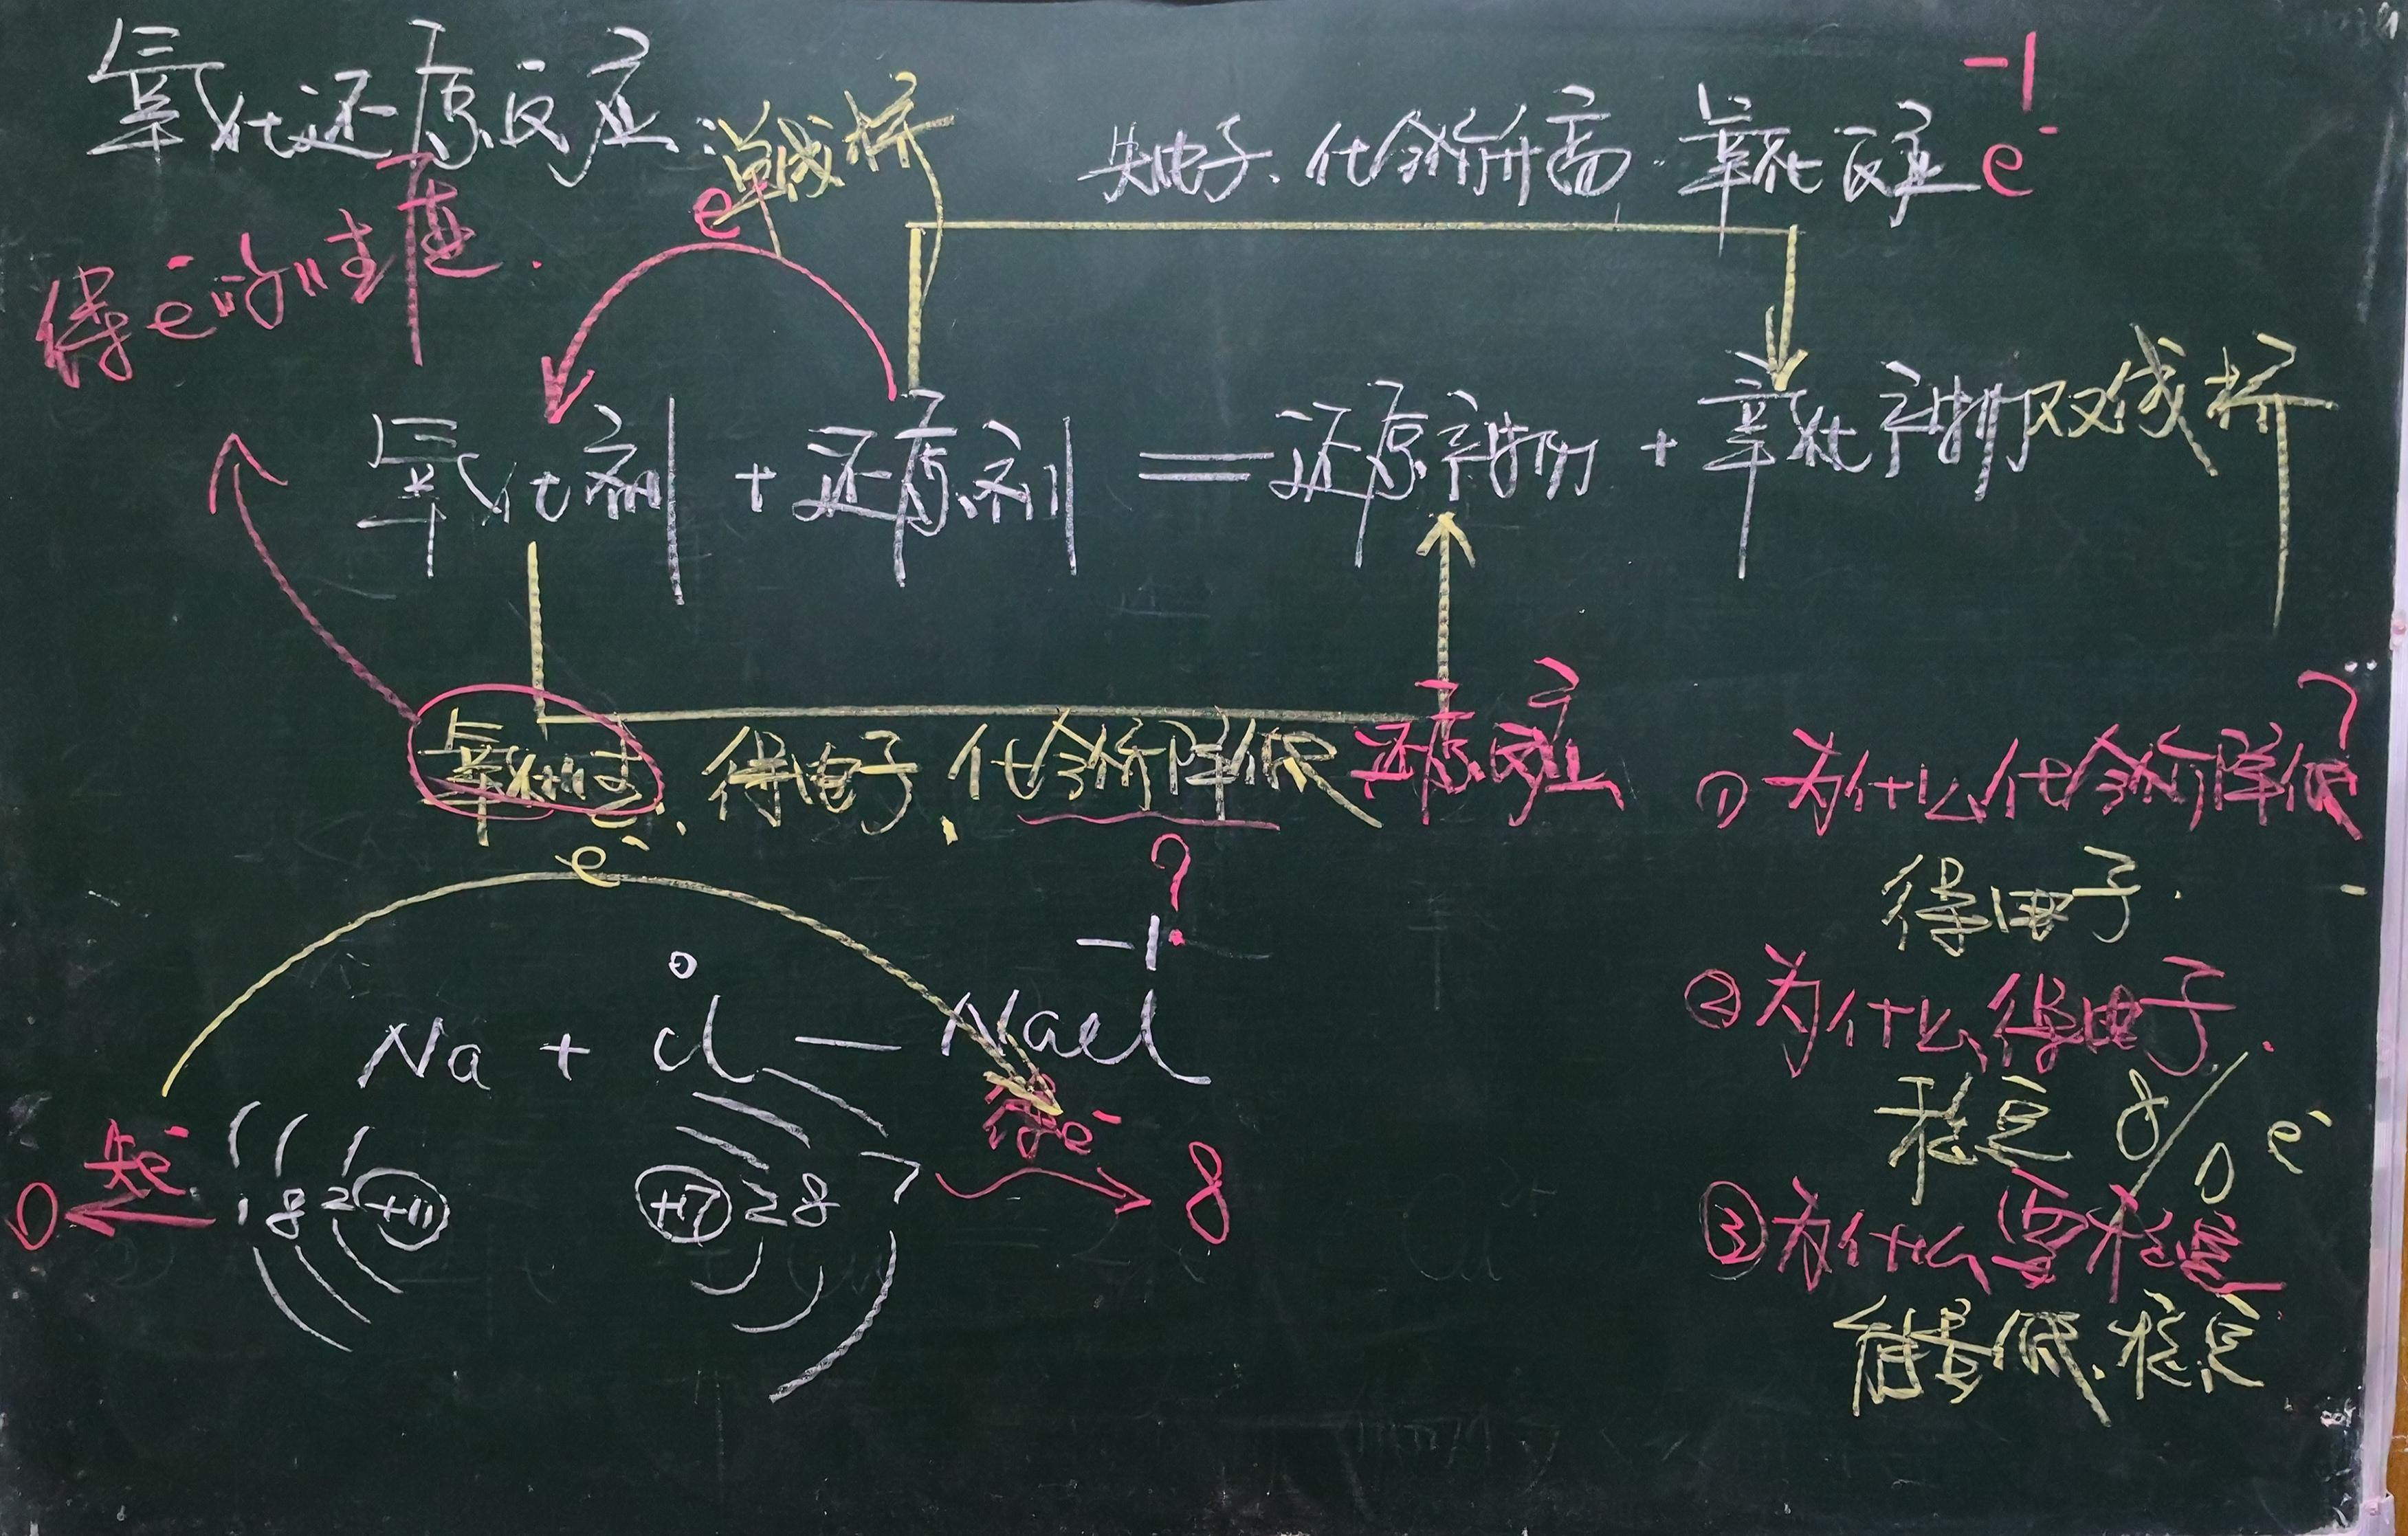 氧化还原反应:单线桥
失电子、化合价升高 氧化反应
-1
e⁻
e⁻
得e⁻的性质
氧化剂 + 还原剂 == 还原产物 + 氧化产物 双线桥
氧化性、得电子、化合价降低 还原反应
e⁻
?
0 -1
Na + Cl — NaCl
0 失e⁻ 1 8 2 +11 +17 2 8 7 得e⁻ 8
①为什么化合价降低?
得电子.
②为什么得电子.
稳定 8/0 e⁻
③为什么要稳定
能量低.稳定